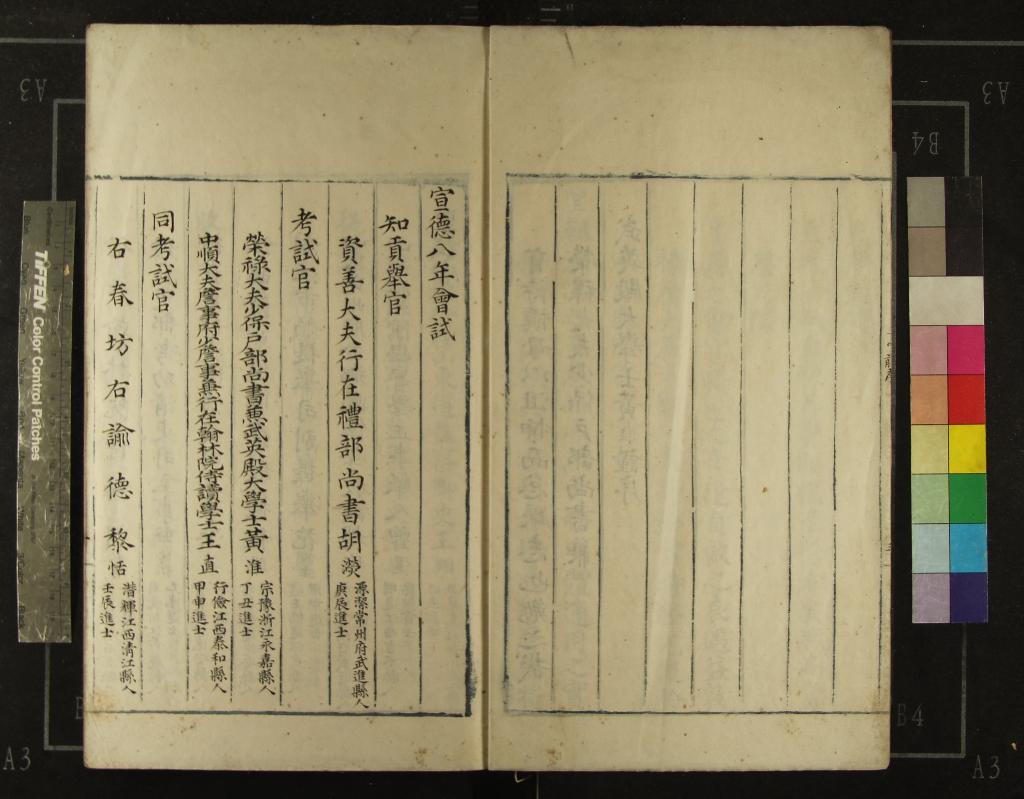 宣德八年會試
知貢舉官
資善大夫行在禮部尚書胡濙 源潔常州府武進縣人
庚辰進士
考試官
榮祿大夫少保戶部尚書兼武英殿大學士黃淮 宗豫浙江永嘉縣人
丁丑進士
中順大夫詹事府少詹事兼行在翰林院侍讀學士王直 行儉江西泰和縣人
甲申進士
同考試官
右春坊右諭德黎恬 潛輝江西清江縣人
壬辰進士
TIFFEN Color Control Patches
A3
B4
A3
B4
A3
A3